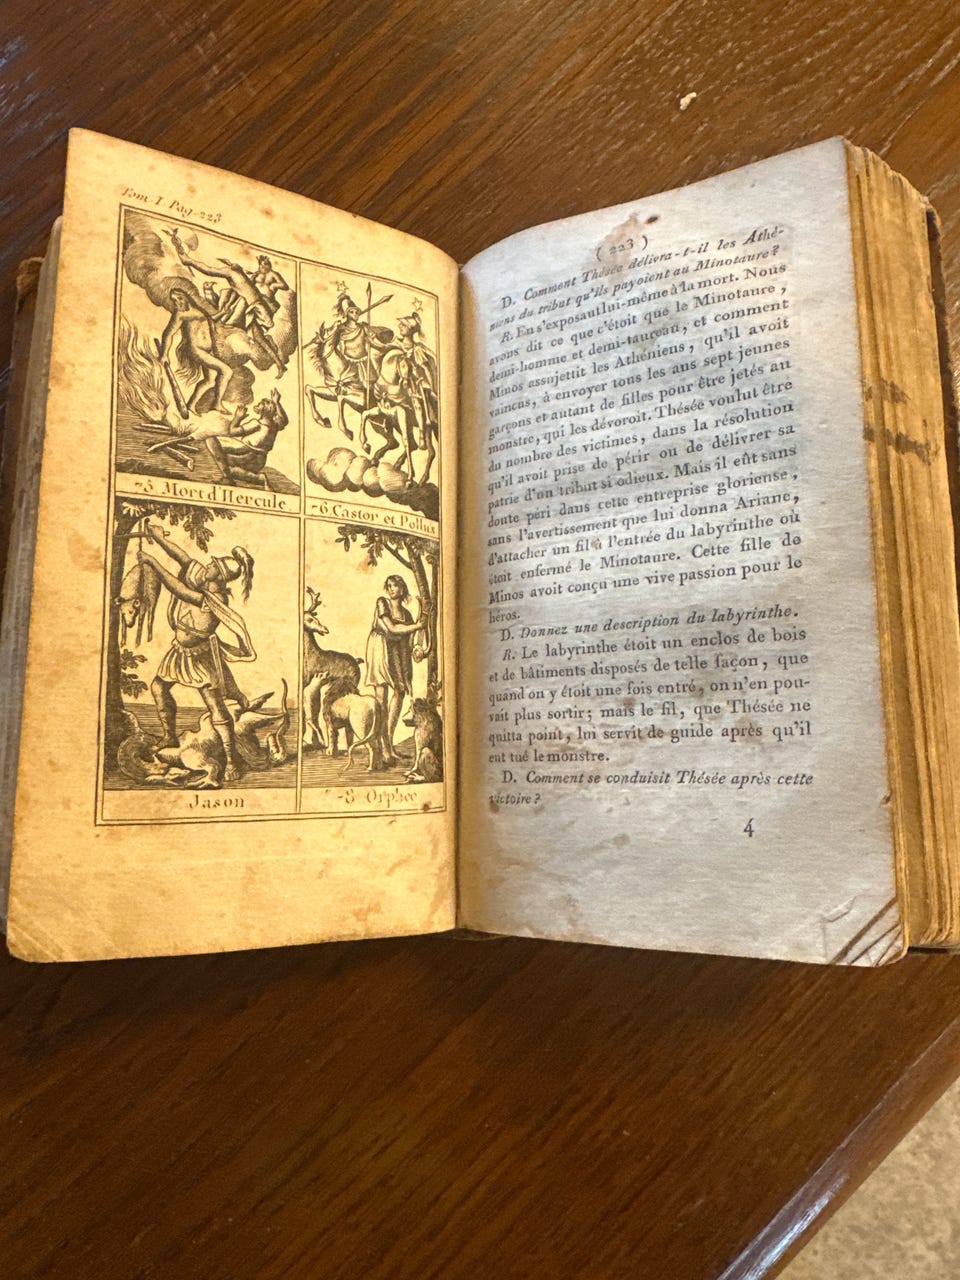 Tom. I. Pag. 223
75 Mort d'Hercule
76 Castor et Pollux
Jason
78 Orphée
( 223 )
D. Comment Thésée délivra-t-il les Athé-
niens du tribut qu'ils payoient au Minotaure ?
R. En s'exposant lui-même à la mort. Nous
avons dit ce que c'étoit que le Minotaure ,
demi-homme et demi-taureau, et comment
Minos assujettit les Athéniens , qu'il avoit
vaincus, à envoyer tous les ans sept jeunes
garçons et autant de filles pour être jetés au
monstre, qui les dévoroit. Thésée voulut être
du nombre des victimes, dans la résolution
qu'il avoit prise de périr ou de délivrer sa
patrie d'un tribut si odieux. Mais il eût sans
doute péri dans cette entreprise glorieuse,
sans l'avertissement que lui donna Ariane,
d'attacher un fil à l'entrée du labyrinthe où
étoit enfermé le Minotaure. Cette fille de
Minos avoit conçu une vive passion pour le
héros.
D. Donnez une description du labyrinthe.
R. Le labyrinthe étoit un enclos de bois
et de bâtimens disposés de telle façon, que
quand on y étoit une fois entré, on n'en pou-
vait plus sortir; mais le fil, que Thésée ne
quitta point, lui servit de guide après qu'il
eut tué le monstre.
D. Comment se conduisit Thésée après cette
victoire ?
4